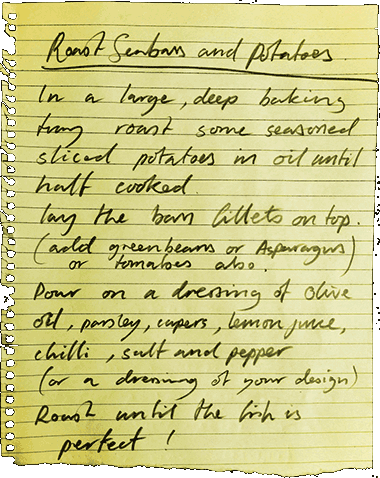 Roast Seabass and potatoes.
In a large, deep baking
tray roast some seasoned
sliced potatoes in oil until
half cooked.
lay the bass fillets on top.
(add greenbeans or Asparagus)
or tomatoes also.
Pour on a dressing of olive
oil, parsley, capers, lemon juice,
chilli, salt and pepper
(or a dressing of your design)
Roast until the fish is
perfect!